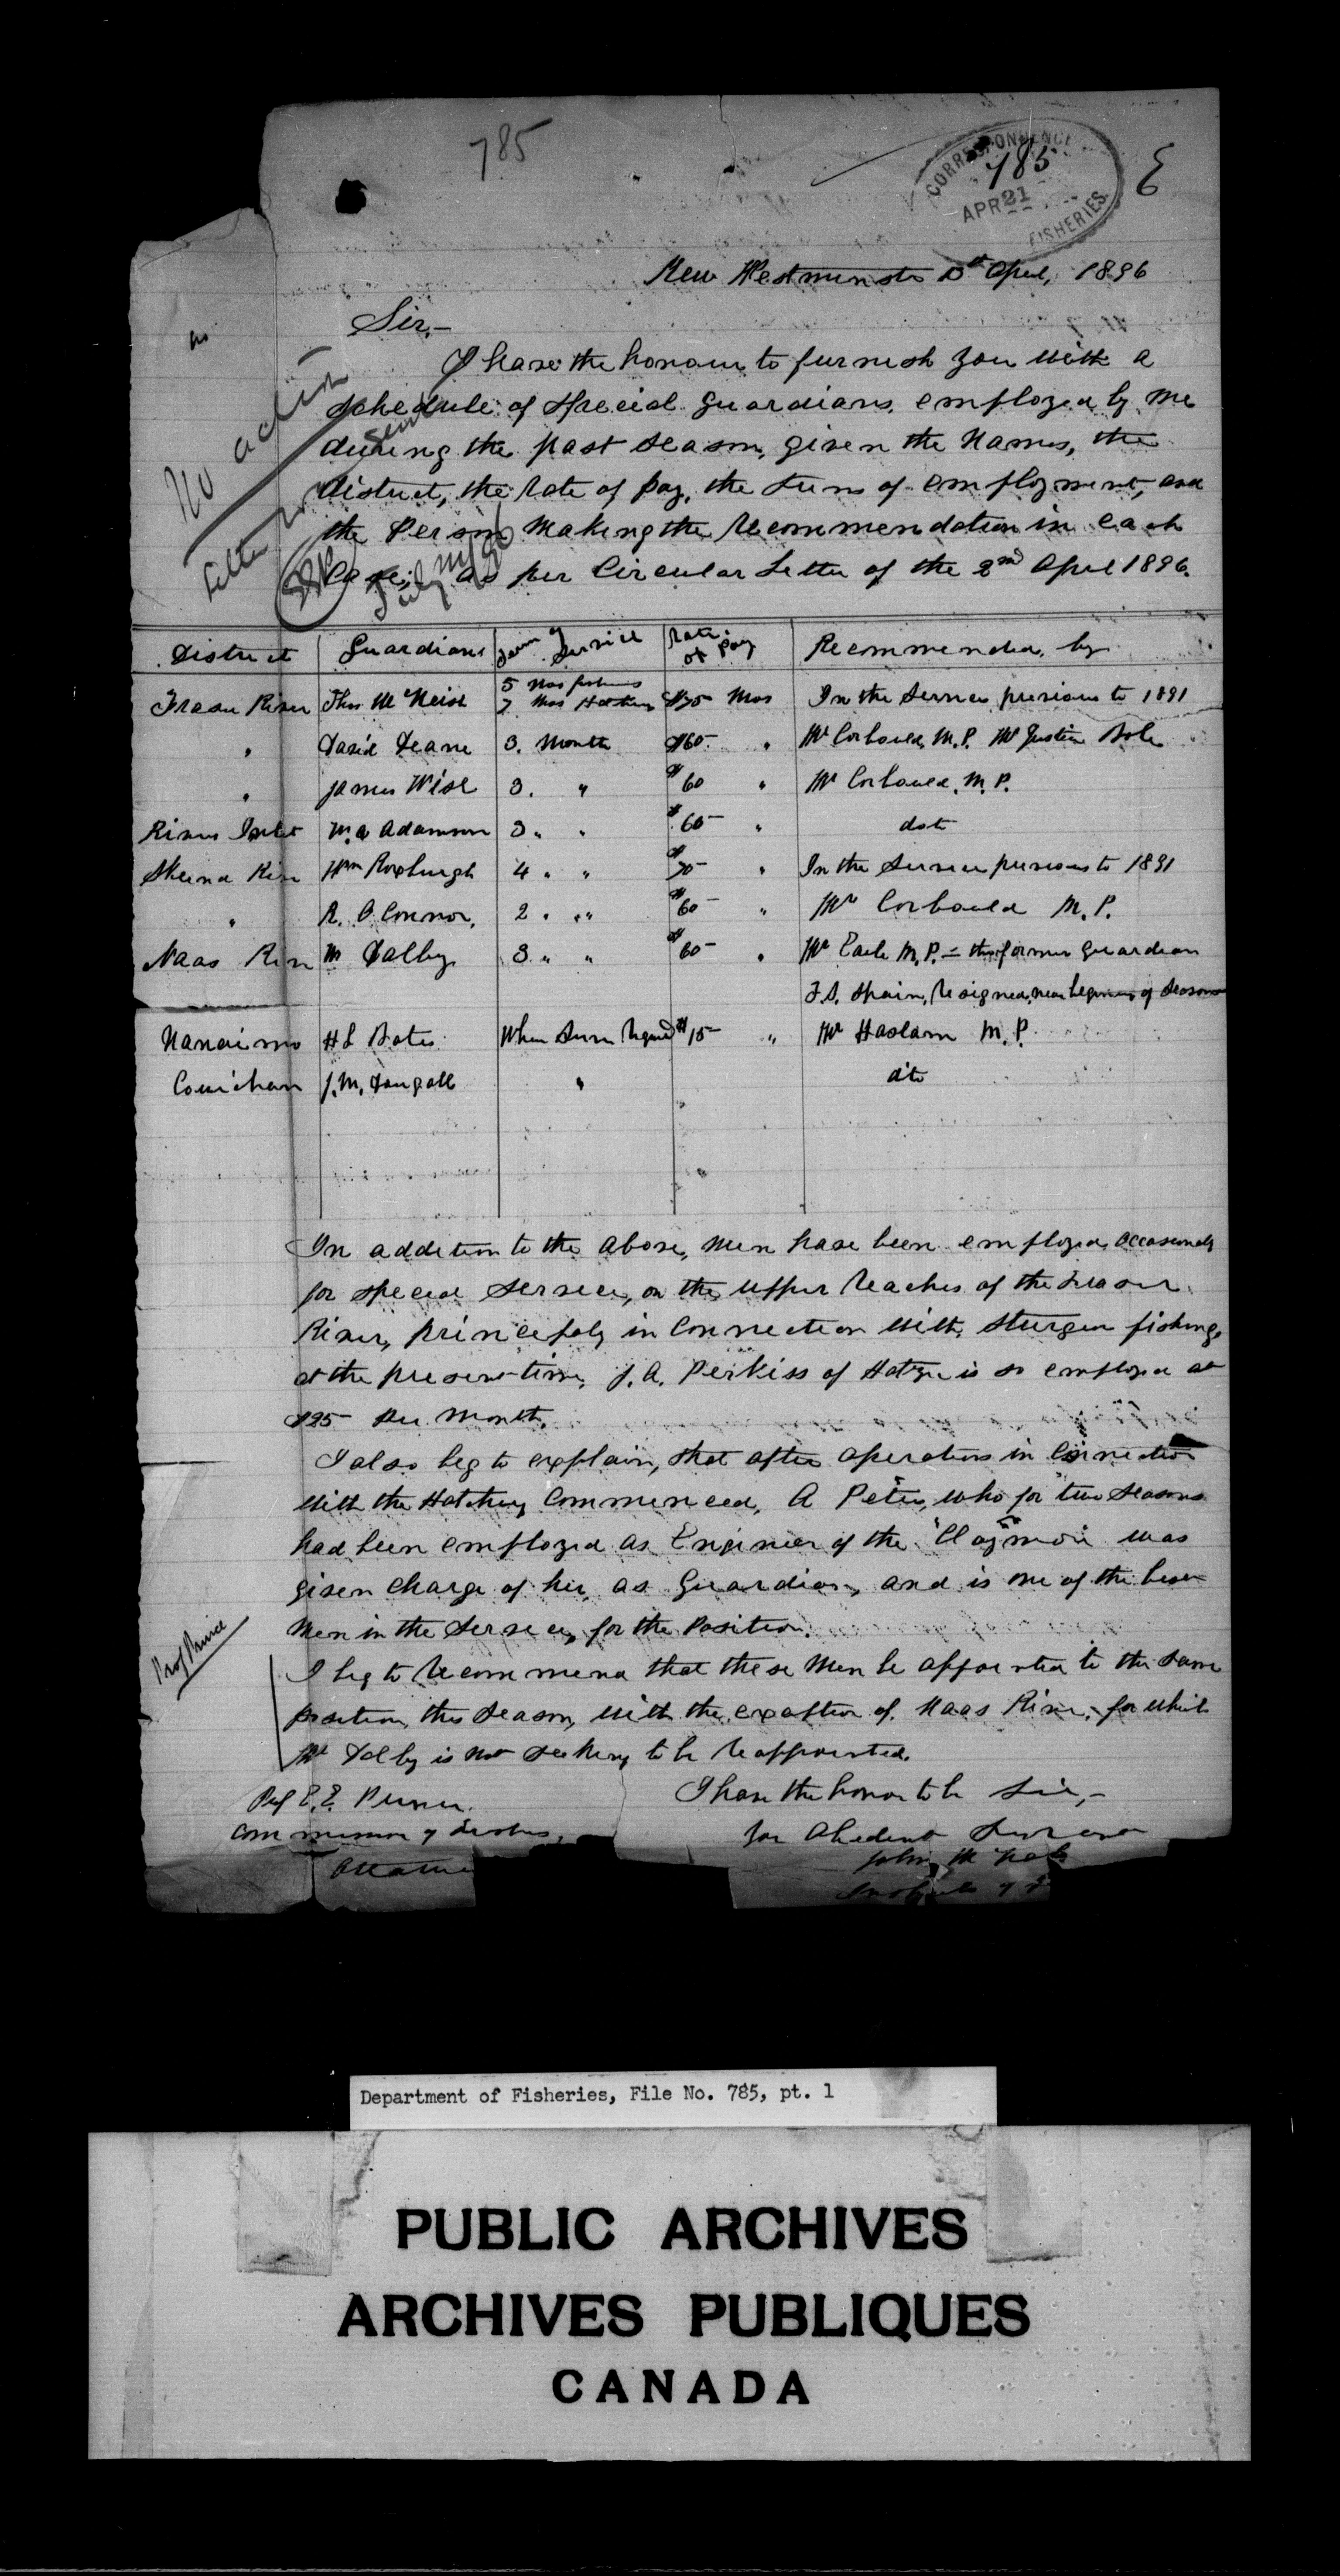 785
CORRESPONDENCE
785
APR 21
FISHERIES
New Westminster April, 1896
Sir,-
I have the honour to furnish you with a
schedule of special guardians, employed by me
during the past season, given the names, the
district, the rate of pay, the term of employment, and
the Person making the recommendation in each
Case, as per Circular Letter of the 2nd April 1896.
No action
July
District | Guardians | Term of Service | Rate of Pay | Recommended by
5 Mos
Fraser River Thos McNeish 7 Mos Hatchery $75- Mos In the Service previous to 1891
" David Deane 3. Month $60- " Mr Corbould, M.P. Mr Justice Bole
" James Wise 3. " $60 " Mr Corbould, M.P.
Rivers Inlet Adamson 3 " " $60- " dito
Skeena River Wm Roxburgh 4 " " 70- " In the Service previous to 1891
" R. O'Connor, 2 " " $60- " Mr Corbould M.P.
Naas River M Dalby 3 " " $60- " Mr Earle M.P. = the former guardian
resigned, near beginning of season
Nanaimo H L Bates When Serv. Required $15- " Mr Haslam M.P.
Cowichan J.M. Dougall " dito
In addition to the above, men have been employed, occasionally
for special service, on the upper reaches of the Fraser
River, principaly in Connection with, Sturgeon fishing,
at the present time, J.A. Perkiss of Hatzic is so employed at
$25- per month.
I also beg to explain, that after operations in Connection
with the Hatchery Commenced, A Peter, who for two seasons
had been employed as Engineer of the was
given charge of her, as Guardian, and is one of the best
men in the service, for the position.
Prof Prince
I beg to recommend that these men be appointed to the same
position, this season, with the exception of Naas River, for which
Mr Dalby is not seeking to be reappointed.
Prof E.E. Prince
Commissioner of Fisheries,
Ottawa
I have the honor to be Sir,-
Your Obedient Servant
John McNab
Inspector of
Department of Fisheries, File No. 785, pt. 1
PUBLIC ARCHIVES
ARCHIVES PUBLIQUES
CANADA